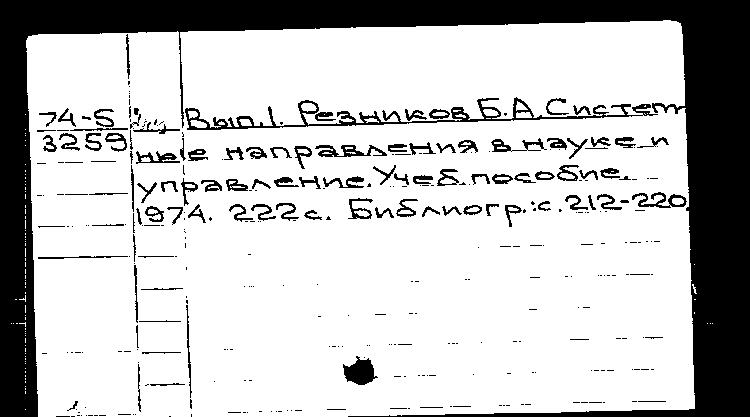 74-5 Вып.1. Резников Б.А. Систем-
3259 ные направления в науке и
управление. Учеб. пособие.
1974. 222с. Библиогр.: с. 212-220.